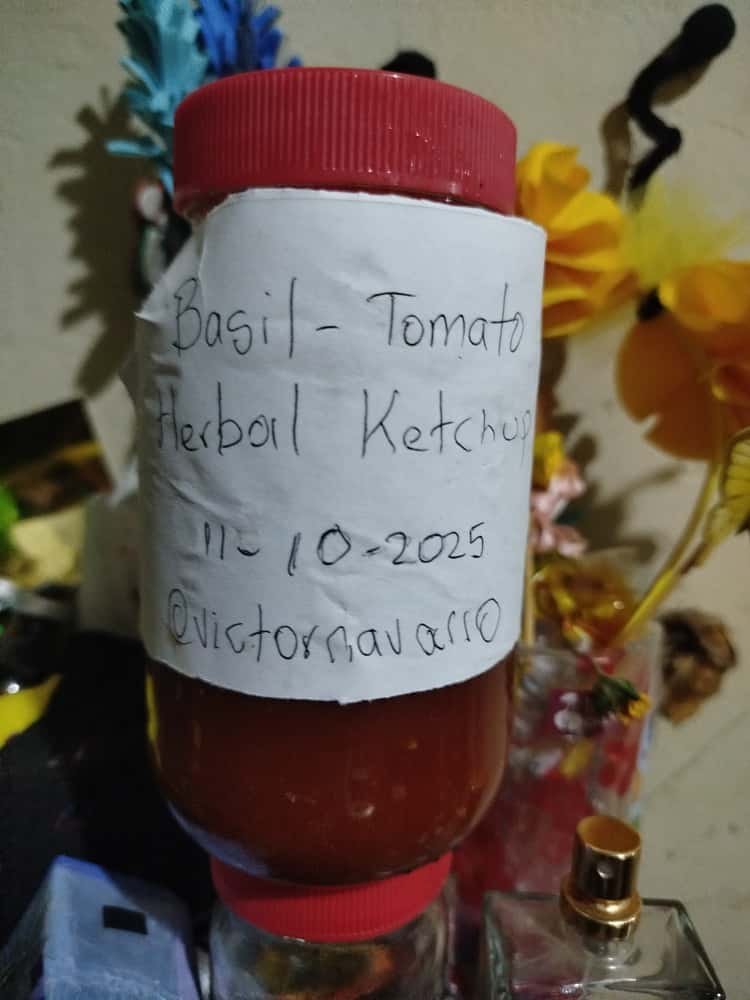 Basil - Tomato
Herbal Ketchup
11-10-2025
@victornavarro